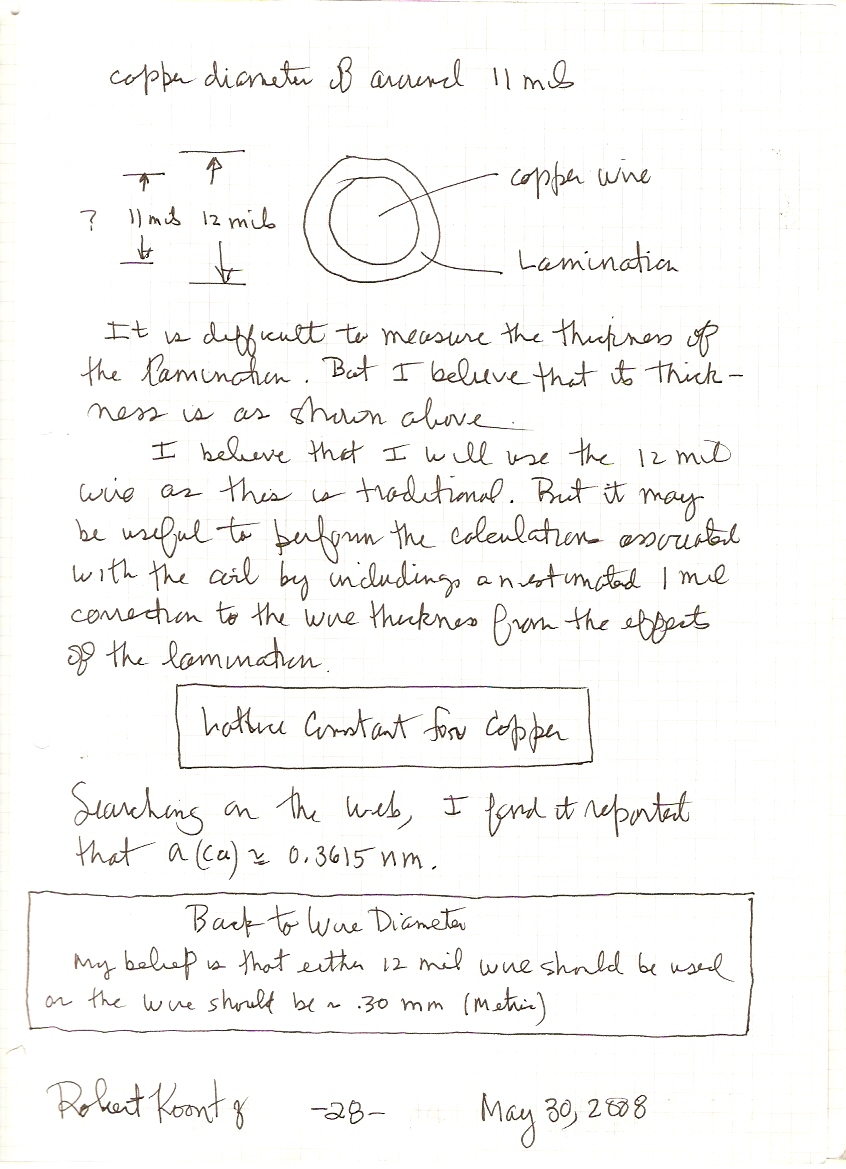 copper diameter is around 11 mils
? 11 mils 12 mils
copper wire
Lamination
It is difficult to measure the thickness of
the lamination. But I believe that its thick-
ness is as shown above.
I believe that I will use the 12 mil
wire as this is traditional. But it may
be useful to perform the calculations associated
with the coil by includings an estimated 1 mil
correction to the wire thickness from the effects
of the lamination.
Lattice Constant for Copper
Searching on the web, I fond it reported
that a(Cu) ≃ 0.3615 nm.
Back to Wire Diameter
My belief is that either 12 mil wire should be used
or the wire should be ~ .30 mm (Metric)
Robert Koontz -28- May 30, 2008